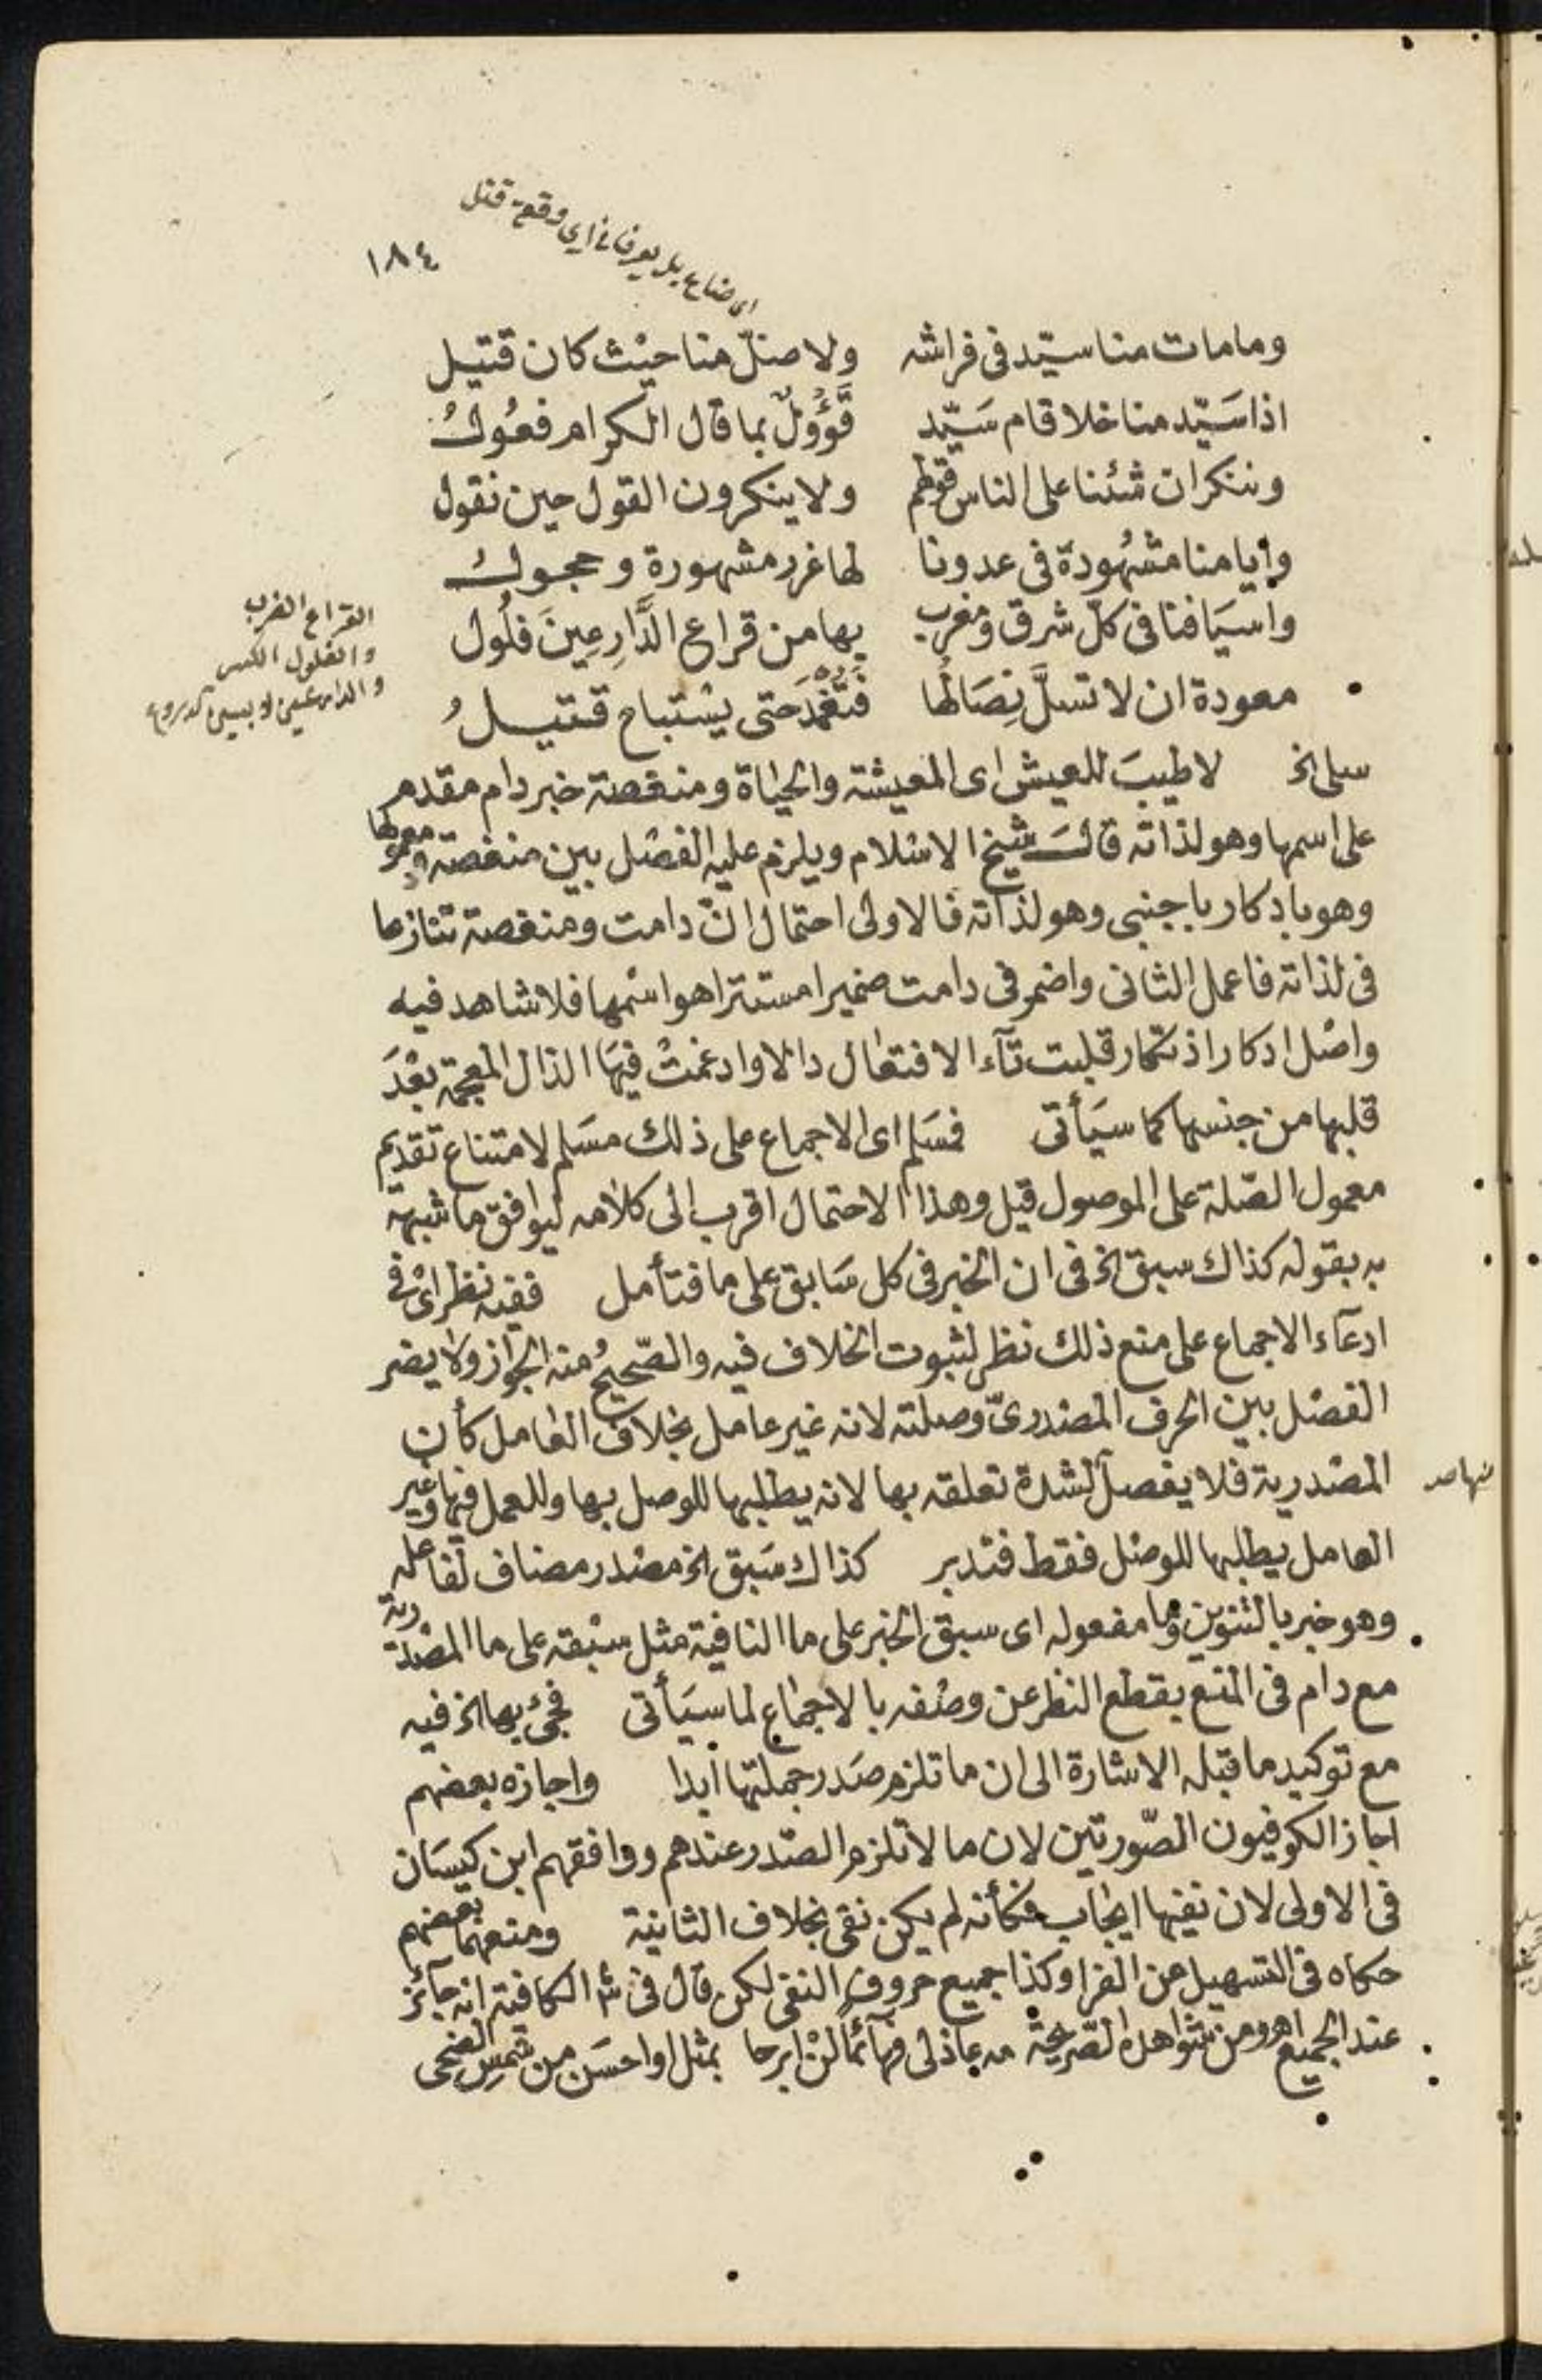 اى ضاع بل يعرفانه اى وقعة قتل
١٨٤
ومامات منا سيّد فى فراشه ولا ضلّ منا حيْث كان قتيل
اذا سَيّد منا خلا قام سَيّد قَؤُولٌ بما قال الكرام فعُولُ
وننكر ان شئنا على الناس قولهم ولا ينكرون القول حين نقول
وايامنا مشهُودة فى عدونا لها غرر مشهورة وحجول
واسيَافنا فى كلّ شرق ومغرب بها من قراع الدَّارِعِينَ فلُول
معودة ان لا تسلَّ نِصَالُها فَتُغْمَدَ حتى يسْتباح قتيلُ
القراع الضرب
والفلول الكسر
والدارعين لابسين الدروع
سلى الخ لا طيبَ للعيش اى المعيشة والحيَاة ومنغصة خبر دام مقدم
على اسمها وهو لذاته قال شيخ الاسْلام ويلزم عليه الفصْل بين منغصة ومعمولها
وهو بادكار باجنبى وهو لذاته فالاولى احتمال انّ دامت ومنغصة تنازعا
فى لذاته فاعمل الثانى واضمر فى دامت ضميرا مستترا هو اسْمها فلا شاهد فيه
واصْل ادكار اذتكار قلبت تآء الافتعال دالا وادغمتْ فيهَا الذال المعجمة بعْدَ
قلبها من جنسها كما سيَأتى فمسَلم اى الاجماع على ذلك مسَلم لامتناع تقديم
معمول الصّلة على الموصول قيل وهذا الاحتمال اقرب الى كلامه ليوافق ما شبهه
به بقوله كذاك سبق الخ فى ان الخبر فى كل سَابق على ما فتأمل ففيه نظر اىْ فى
ادعآء الاجماع على منع ذلك نظر لثبوت الخلاف فيه والصّحيحُ منه الجواز ولا يضر
الفصْل بين الحرف المصْدرىّ وصلته لانه غير عامل بخلاف العامل كأن
المصْدرية فلا يفصل منها لشدة تعلقه بها لانه يطلبها للوصل بها وللعمل فيها وغير
العامل يطلبها للوصْل فقط فتدبر كذاك سَبق الخ مصْدر مضاف لفاعله
وهو خبر بالتنوين وما مفعوله اى سبق الخبر على ما النافية مثل سبْقه على ما المصْدرية
مع دام فى المنع بقطع النظر عن وصْفه بالاجماع لما سيَأتى فجئ بها الخ فيه
مع توكيد ما قبله الاشارة الى ان ما تلزم صَدر جملتها ابدا واجازه بعضهم
اجاز الكوفيون الصّورتين لان ما لا تلزم الصّدر عندهم ووافقهم ابن كيسَان
فى الاولى لان نفيها ايجاب فكأنه لم يكن نفى بخلاف الثانية ومنعهما بعضهم
حكاه فى التسهيل عن الفرا وكذا جميع حروف النفى لكن قال فى ش الكافية انه جآئز
عند الجميع اهـ ومن شواهده الصّريحة مه عاذلى فهآئما لنْ ابرحا بمثل او احسَن من شمسِ الضحى